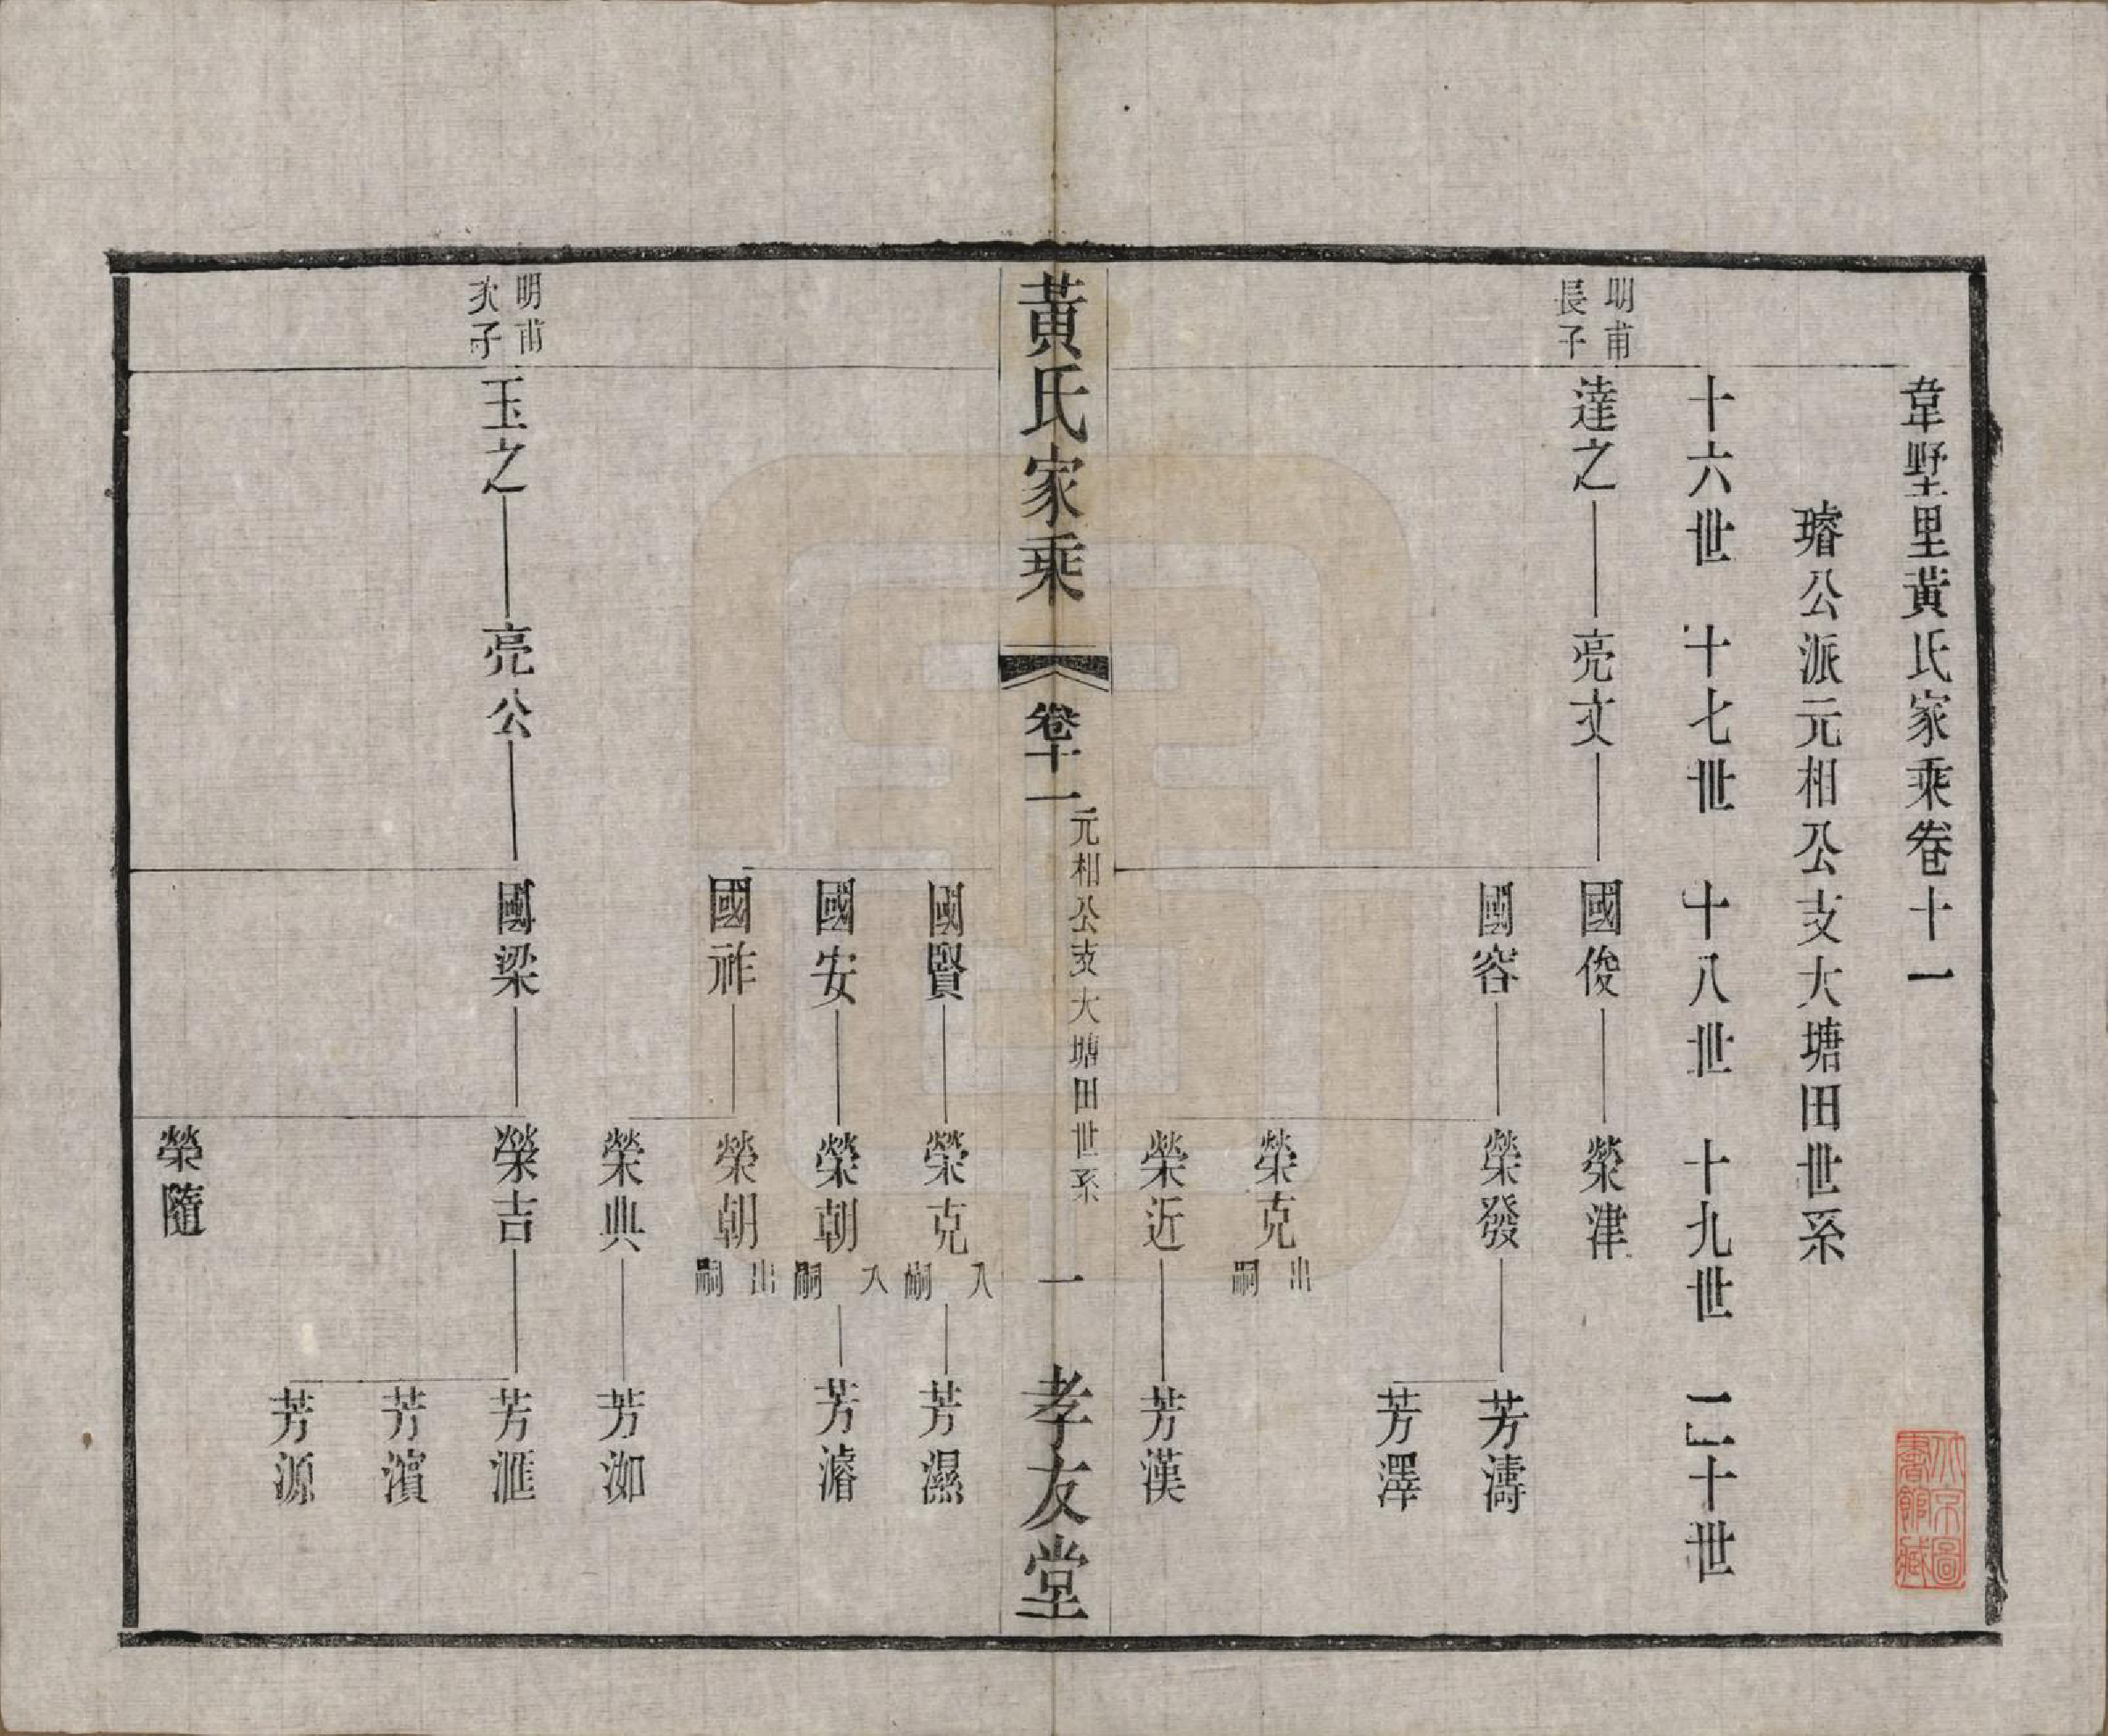 韋墅里黃氏家乘卷十一
璿公派元相公支大塘田世系
十六世　十七世　十八世　十九世　二十世
明甫長子　達之　亮文　國俊　榮津
國容　榮發　芳濤
芳澤
榮克出嗣
榮近　芳漢
黃氏家乘　卷十一　元相公支大塘田世系　一　孝友堂
國賢　榮克入嗣　芳濕
國安　榮朝入嗣　芳濬
國祚　榮朝出嗣
榮典　芳洳
明甫次子　玉之　亮公　國梁　榮吉　芳滙
芳濱
芳源
榮隨
北京圖書館藏